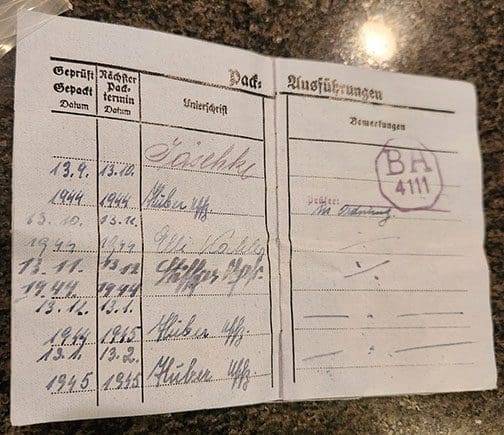 Pack-Ausführungen
Geprüft Gepackt Datum
Nächster Packtermin Datum
Unterschrift
Bemerkungen
Jäschke
13.9. 13.10.
1944 1944 Huber Uffz.
BA 4111
in Ordnung
13.10. 13.11.
1944 1944
13.11. 13.12.
1944 1944
13.12. 13.1.
1944 1945 Huber Uffz.
13.1. 13.2.
1945 1945 Huber Uffz.